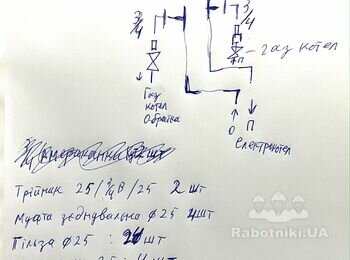 3/4
3/4
газ котел
Газ
котел
Обратка
О
П
Електрокотел
Трійник 25/3/4В/25 2 шт
Муфта з'єднувальна ф25 4шт
Гільза ф25 : шт
Rabotniki.UA